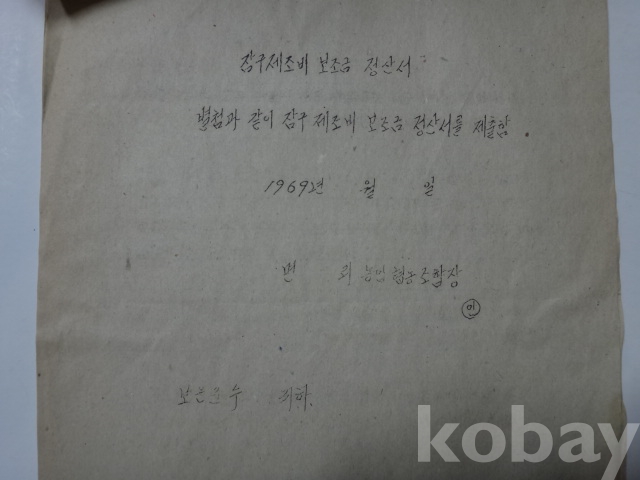 잠구제조비 보조금 정산서
별첨과 같이 잠구 제조비 보조금 정산서를 제출함.
1969년 월 일
면 리 농업협동조합장
인
보은군수 귀하
kobay